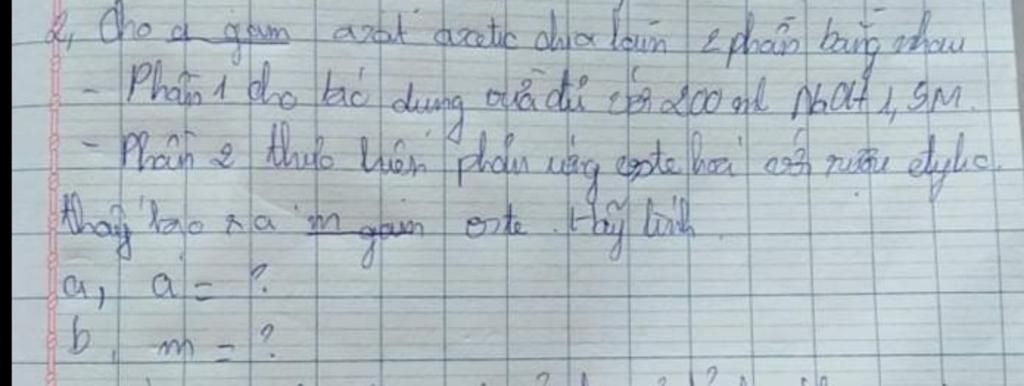 2, Cho a gam axat axetic chia làm 2 phần bằng nhau
- Phần 1 cho tác dụng vừa đủ với 200 ml NaOH 1,5M.
- Phần 2 thực hiện phản ứng este hoá với rượu etylic.
thấy tạo ra m gam este. Hãy tính
a, a = ?
b, m = ?